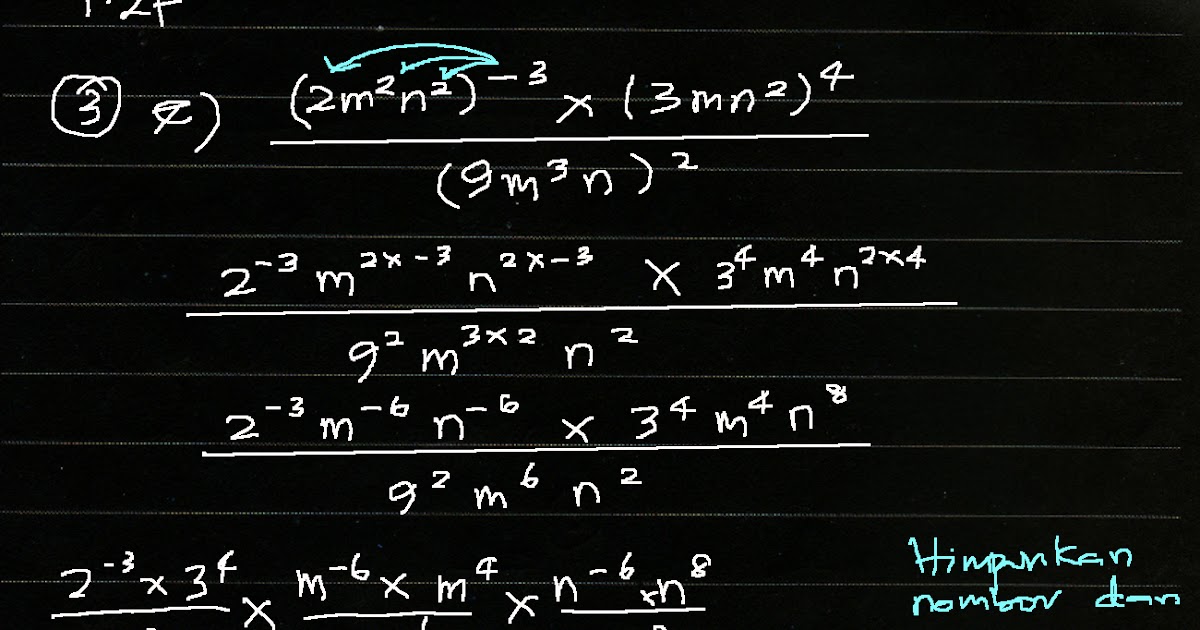 (3) c) (2m²n²)⁻³ × (3mn²)⁴
(9m³n)²
2⁻³ m²ˣ⁻³ n²ˣ⁻³ × 3⁴m⁴n²ˣ⁴
9² m³ˣ² n²
2⁻³ m⁻⁶ n⁻⁶ × 3⁴ m⁴ n⁸
9² m⁶ n²
2⁻³ × 3⁴ × m⁻⁶ × m⁴ × n⁻⁶ × n⁸
Himpunkan
nombor dan